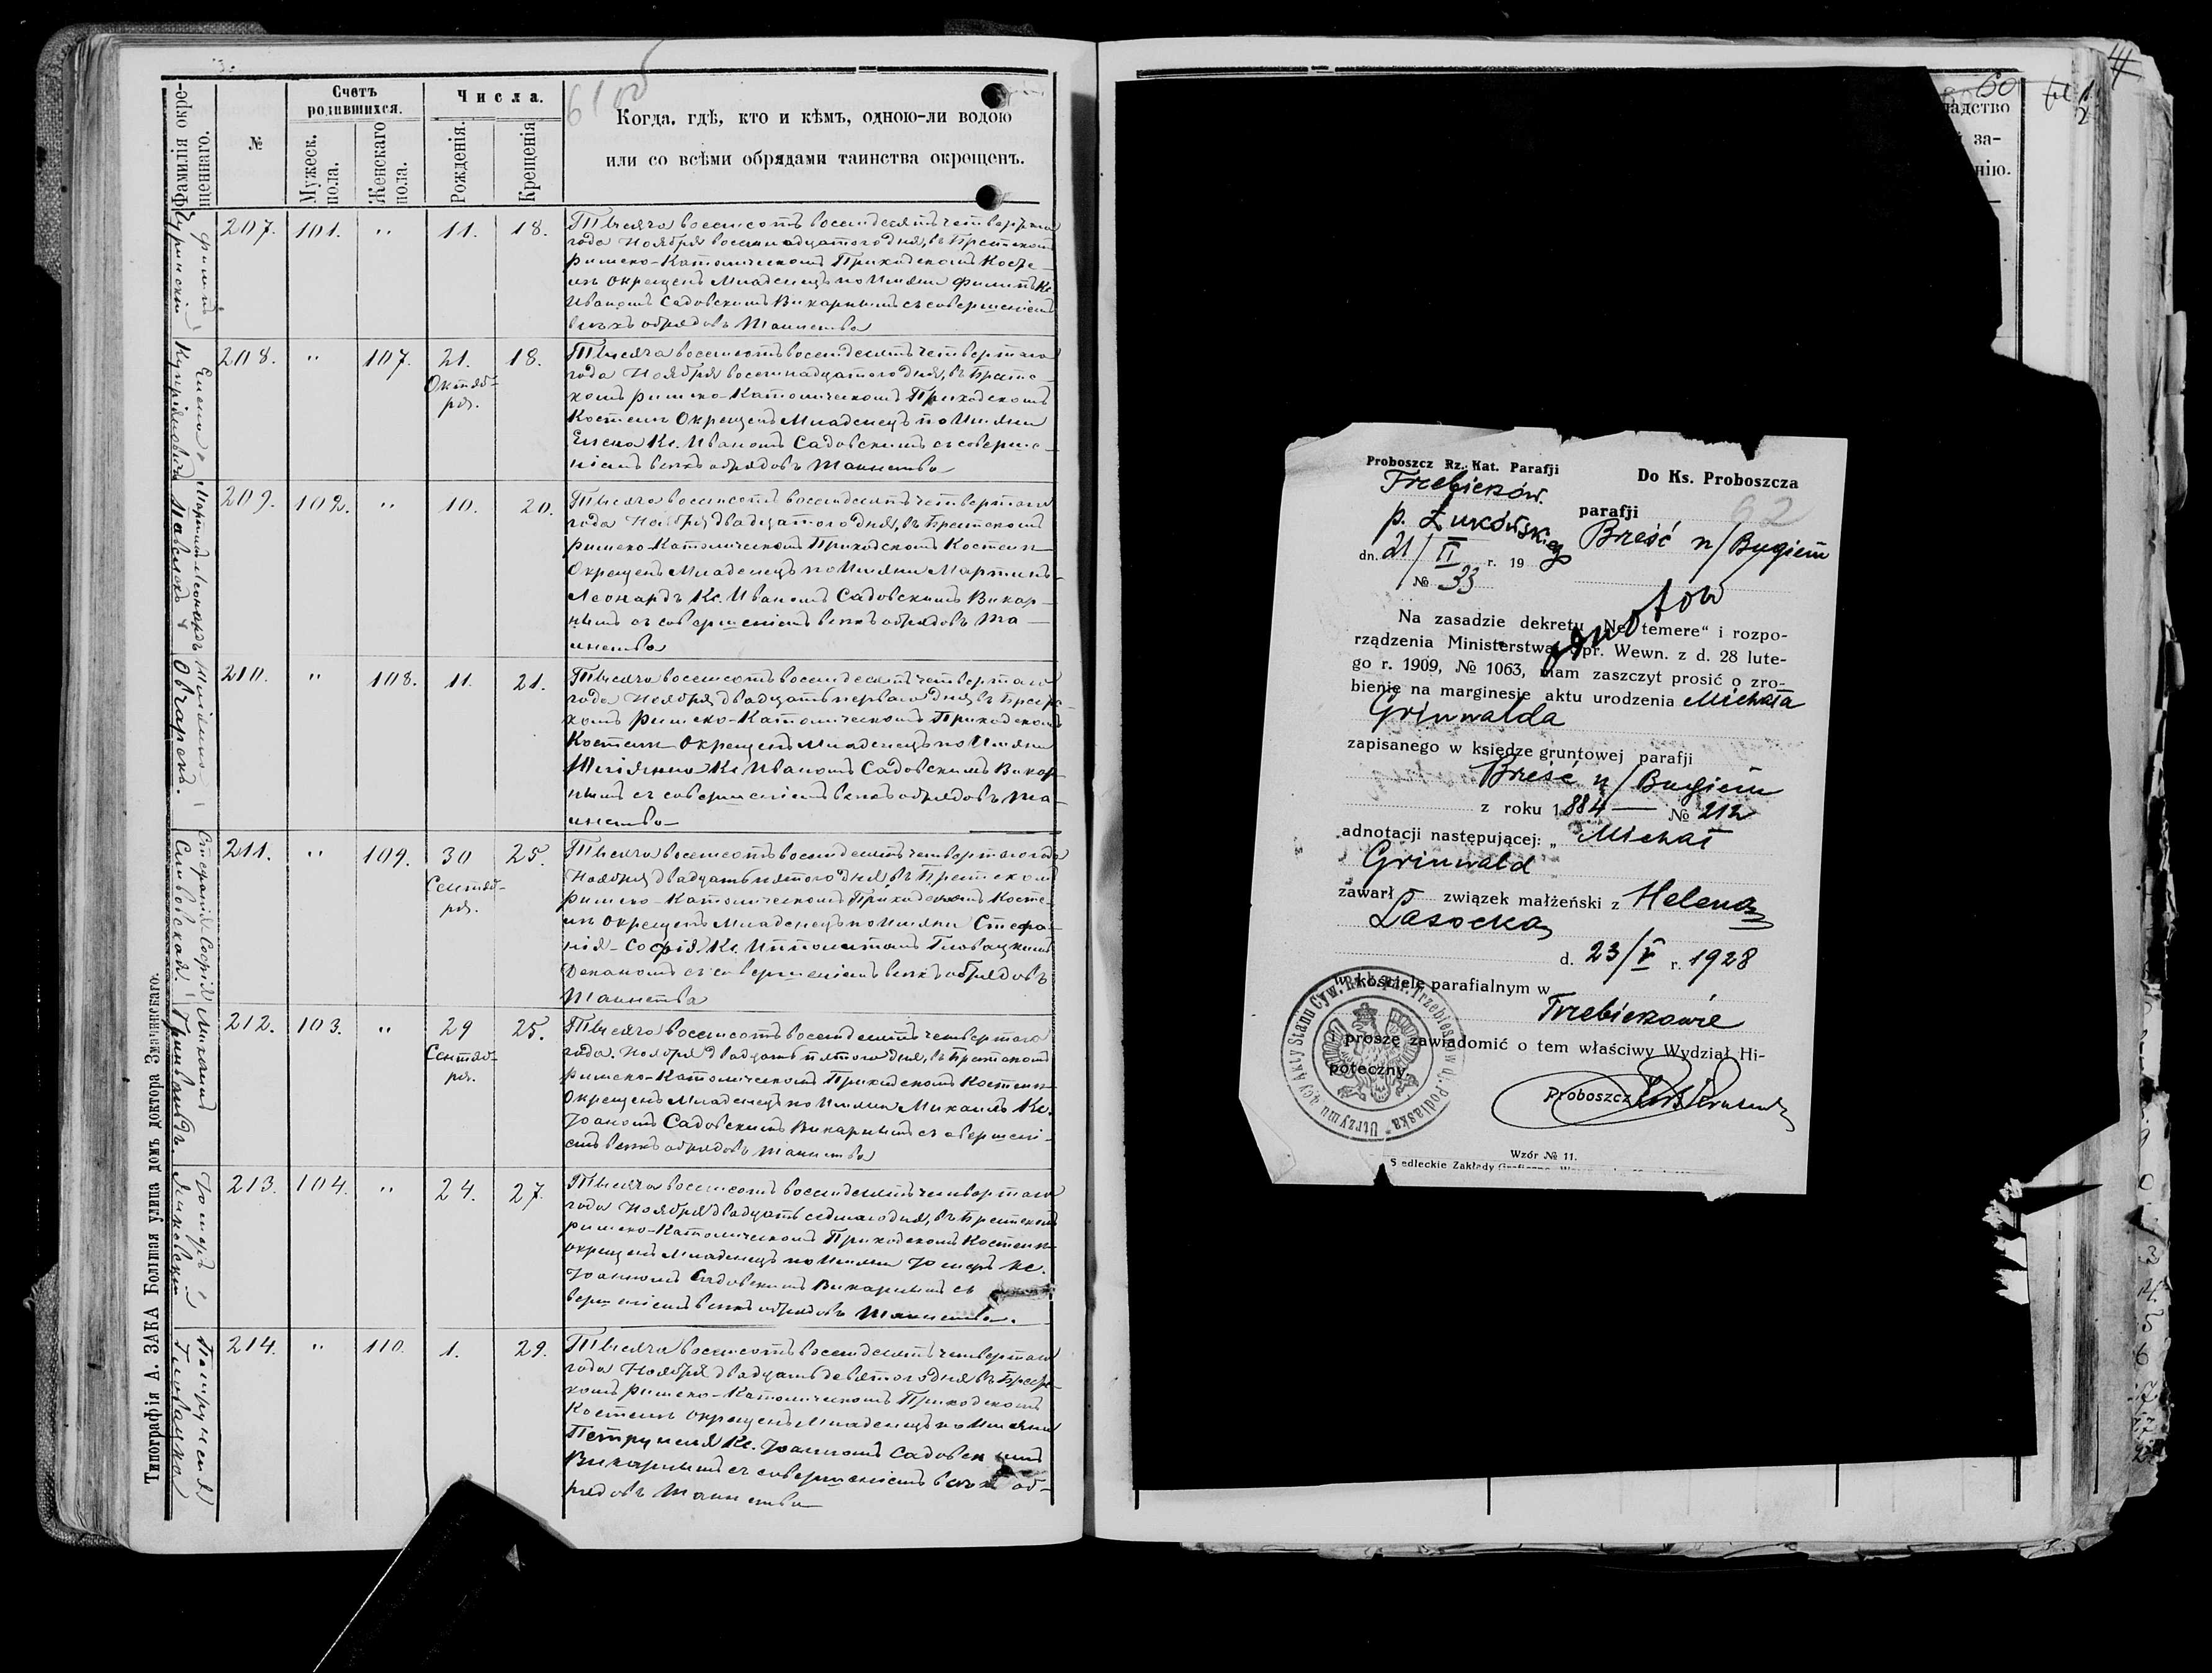 Фамилія окре-
щеннаго.
№
Счетъ
родившихся.
Мужеск.
пола.
Женскаго
пола.
Числа.
Рожденія.
Крещенія
Когда, гдѣ, кто и кѣмъ, одною-ли водою
или со всѣми обрядами таинства окрещенъ.
207. 101. " 11. 18.
Тысяча восемсотъ восемдесятъ четвертаго
года Ноября восемнадцатого дня, въ Брестскомъ
Римско-Католическомъ Приходскомъ Косте-
лѣ Окрещенъ Младенецъ по Имяни Филипъ Кс.
Иваномъ Садовскимъ Викарнымъ съ совершеніемъ
всѣхъ обрядовъ Таинства
208. " 107. 21. 18.
Октяб-
ря.
Тысяча восемсотъ восемдесятъ четвертаго
года Ноября восемнадцатого дня, въ Брестс-
комъ Римско-Католическомъ Приходскомъ
Костелѣ Окрещенъ Младенецъ по Имяни
Елена Кс. Иваномъ Садовскимъ съ соверше-
ніемъ всѣхъ обрядовъ Таинства
209. 102. " 10. 20.
Тысяча восемсотъ восемдесятъ четвертаго
года Ноября двадцатого дня, въ Брестскомъ
Римско-Католическомъ Приходскомъ Костелѣ
Окрещенъ Младенецъ по Имяни Мартинъ-
Леонардъ Кс. Иваномъ Садовскимъ Викар-
нымъ съ совершеніемъ всѣхъ обрядовъ Та-
инства
210. " 108. 11. 21.
Тысяча восемсотъ восемдесятъ четвертаго
года Ноября двадцать перваго дня, въ Брестс-
комъ Римско-Католическомъ Приходскомъ
Костелѣ Окрещенъ Младенецъ по Имяни
Кс. Иваномъ Садовскимъ Викар-
нымъ съ совершеніемъ всѣхъ обрядовъ Та-
инства
211. " 109. 30 25.
Сентяб-
ря.
Тысяча восемсотъ восемдесятъ четвертаго года
Ноября двадцать пятого дня въ Брестскомъ
Римско-Католическомъ Приходскомъ Косте-
лѣ Окрещенъ Младенецъ по Имяни Стефа-
нія-Софія Кс. Ипполитомъ Гловацкимъ
Деканомъ съ совершеніемъ всѣхъ обрядовъ
Таинства
212. 103. " 29 25.
Сентяб-
ря.
Тысяча восемсотъ восемдесятъ четвертаго
года Ноября двадцать пятого дня, въ Брестскомъ
Римско-Католическомъ Приходскомъ Костелѣ
Окрещенъ Младенецъ по Имяни Михаилъ Кс.
Іоаномъ Садовскимъ Викарнымъ съ совершені-
емъ всѣхъ обрядовъ Таинства
213. 104. " 24. 27.
Тысяча восемсотъ восемдесятъ четвертаго
года Ноября двадцать седмаго дня, въ Брестскомъ
Римско-Католическомъ Приходскомъ Костелѣ
окрещенъ Младенецъ по Имяни Іосифъ Кс.
Іоанномъ Садовскимъ Викарнымъ съ
вершеніемъ всѣхъ обрядовъ Таинства.
214. " 110. 1. 29.
Тысяча восемсотъ восемдесятъ четвертаго
года Ноября двадцать девятого дня въ Брестс-
комъ Римско-Католическомъ Приходскомъ
Костелѣ окрещенъ Младенецъ по Имяни
Петрунеля Кс. Іоанномъ Садовскимъ
Викарнымъ съ совершеніемъ всѣхъ об-
рядовъ Таинства
Типографія А. ЗАКА Болтая улица домъ доктора Знаминскаго.
60
Proboszcz Rz. Kat. Parafji
Trebieszów.
p. Łukówskiego
dn. 21/VI r. 19
№ 33
Do Ks. Proboszcza
62
parafji
Brześć n/Bugiem
Na zasadzie dekretu „Ne temere“ i rozpo-
rządzenia Ministerstwa Spr. Wewn. z d. 28 lute-
go r. 1909, № 1063, mam zaszczyt prosić o zro-
bienie na marginesie aktu urodzenia Michała
Grinwalda
zapisanego w księdze gruntowej parafji
Brześć n/Bugiem
z roku 1884 — № 212
adnotacji następującej: „ Michał
Grinwald
zawarł związek małżeński z Heleną
Lasocką
d. 23/V r. 1928
w kościele parafialnym w
Trzebieszowie
i proszę zawiadomić o tem właściwy Wydział Hi-
poteczny.
Proboszcz
Wzór № 11.
Siedleckie Zakłady Graficzne